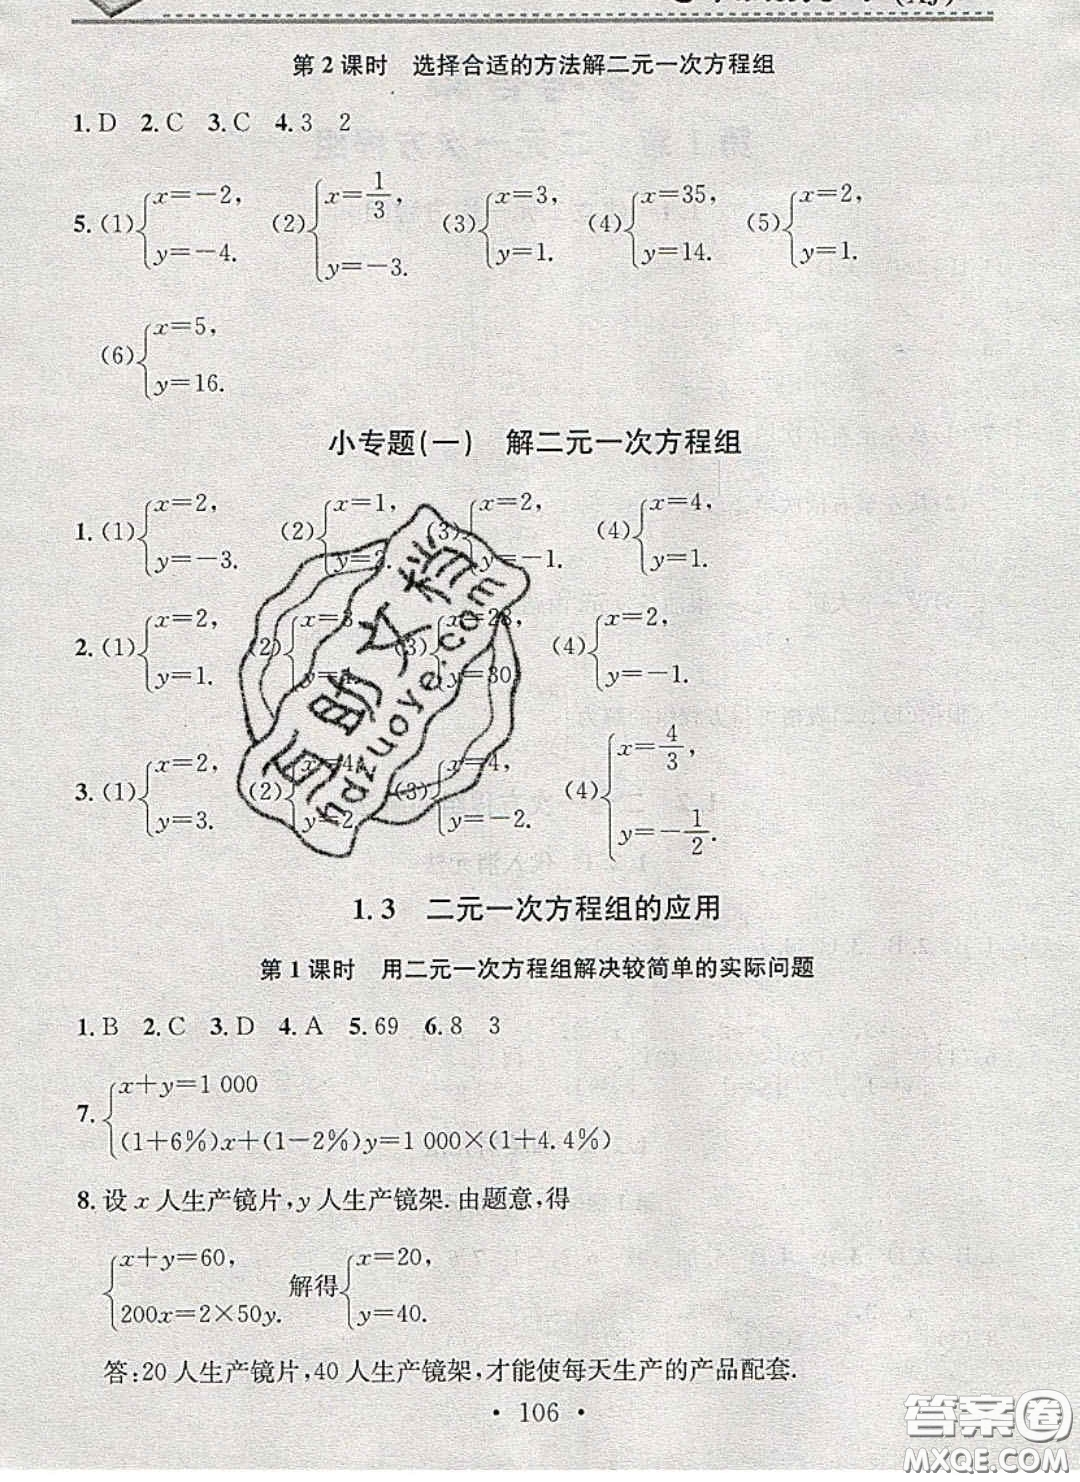 (XJ)
第2课时 选择合适的方法解二元一次方程组
1.D 2.C 3.C 4.3 2
5.(1){x=-2, y=-4. (2){x=1/3, y=-3. (3){x=3, y=1. (4){x=35, y=14. (5){x=2, y=1.
(6){x=5, y=16.
小专题(一) 解二元一次方程组
1.(1){x=2, y=-3. (2){x=1, (3){x=2, y=-1. (4){x=4, y=1.
2.(1){x=2, y=1. (2){x=3, (3){x=28, y=30. (4){x=2, y=-1.
3.(1){x=2, y=3. (2){x=4, y=2. (3){x=4, y=-2. (4){x=4/3, y=-1/2.
百助文档
hdzuoye.com
1.3 二元一次方程组的应用
第1课时 用二元一次方程组解决较简单的实际问题
1.B 2.C 3.D 4.A 5.69 6.8 3
7.{x+y=1 000
(1+6%)x+(1-2%)y=1 000×(1+4.4%)
8.设x人生产镜片,y人生产镜架.由题意,得
{x+y=60, 200x=2×50y. 解得{x=20, y=40.
答:20人生产镜片,40人生产镜架,才能使每天生产的产品配套.
· 106 ·
答案圈
MXQE.COM